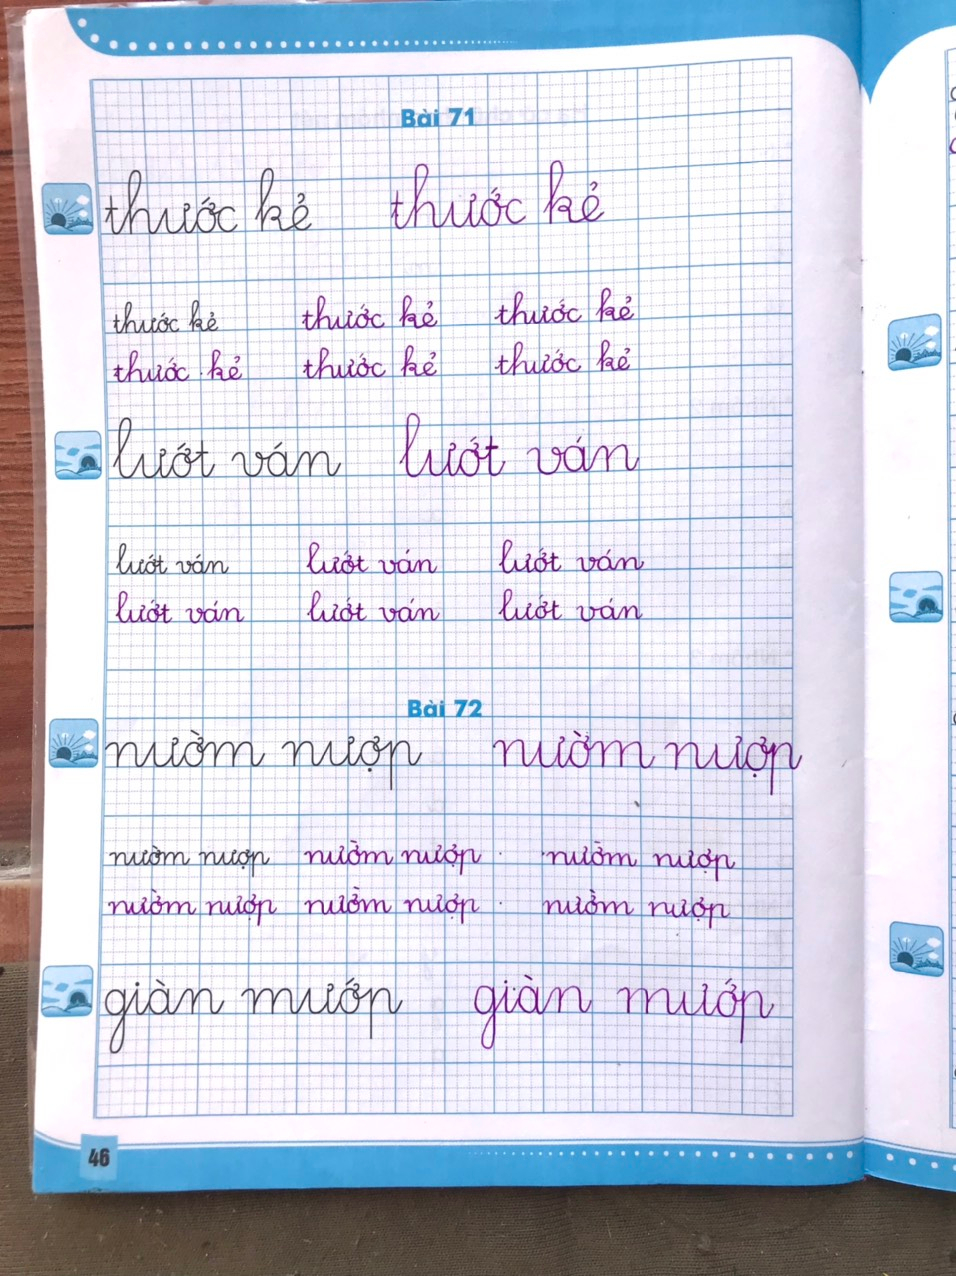 Bài 71
thước kẻ thước kẻ
thước kẻ thước kẻ thước kẻ
thước kẻ thước kẻ thước kẻ
lướt ván lướt ván
lướt ván lướt ván lướt ván
lướt ván lướt ván lướt ván
Bài 72
nườm nượp nườm nượp
nườm nượp nườm nượp nườm nượp
nườm nượp nườm nượp nườm nượp
giàn mướp giàn mướp
46